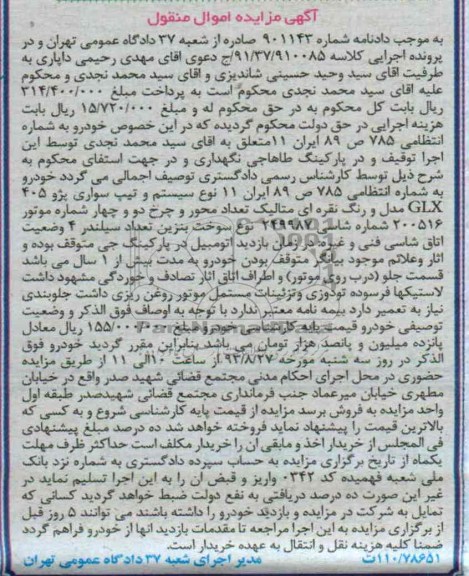 آگهی مزایده اموال منقول
به موجب دادنامه شماره ۹۰۱۱۴۳ صادره از شعبه ۳۷ دادگاه عمومی تهران و در
پرونده اجرایی کلاسه ۹۱/۳۷/۹۱۰۰۸۵/ج دعوی اقای مهدی رحیمی داپاری به
طرفیت اقای سید وحید حسینی شاندیزی و اقای سید محمد نجدی و محکوم
علیه اقای سید محمد نجدی محکوم است به پرداخت مبلغ ۳۱۴/۴۰۰/۰۰۰
ریال بابت کل محکوم به در حق محکوم له و مبلغ ۱۵/۷۲۰/۰۰۰ ریال بابت
هزینه اجرایی در حق دولت محکوم گردیده که در این خصوص خودرو به شماره
انتظامی ۷۸۵ ص ۸۹ ایران ۱۱متعلق به اقای سید محمد نجدی توسط این
اجرا توقیف و در پارکینگ طاهاجی نگهداری و در جهت استفای محکوم به
شرح ذیل توسط کارشناس رسمی دادگستری توصیف اجمالی می گردد خودرو
به شماره انتظامی ۷۸۵ ص ۸۹ ایران ۱۱ نوع سیستم و تیپ سواری پژو ۴۰۵
GLX مدل و رنگ نقره ای متالیک تعداد محور و چرخ دو و چهار شماره موتور
۲۰۰۵۱۶ شماره شاسی ۲۴۹۹۸۷ نوع سوخت بنزین تعداد سیلندر ۴ وضعیت
اتاق شاسی فنی و غیره در زمان بازدید اتومبیل در پارکینگ جی متوقف بوده و
اثار وعلائم موجود بیانگر متوقف بودن خودرو به مدت بیش از ۱ سال می باشد
قسمت جلو (درب روی موتور) و اطراف اتاق اثار تصادف و خوردگی مشهود داشت
لاستیکها فرسوده تودوزی وتزئینات مستعمل موتور روغن ریزی داشت جلوبندی
نیاز به تعمیر دارد بیمه نامه معتبر ندارد با توجه به اوصاف فوق الذکر و وضعیت
توصیفی خودرو قیمت پایه کارشناسی خودرو مبلغ ۱۵۵/۰۰۰/۰۰۰ ریال معادل
پانزده میلیون و پانصد هزار تومان می باشد بنابراین مقرر گردید خودرو فوق
الذکر در روز سه شنبه مورخه ۹۳/۸/۲۷ از ساعت ۱۰الی ۱۱ از طریق مزایده
حضوری در محل اجرای احکام مدنی مجتمع قضائی شهید صدر واقع در خیابان
مطهری خیابان میرعماد جنب فرمانداری مجتمع قضائی شهیدصدر طبقه اول
واحد مزایده به فروش برسد مزایده از قیمت پایه کارشناسی شروع و به کسی که
بالاترین قیمت را پیشنهاد نماید فروخته خواهد شد ده درصد مبلغ پیشنهادی
فی المجلس از خریدار اخذ و مابقی ان را خریدار مکلف است حداکثر ظرف مهلت
یکماه از تاریخ برگزاری مزایده به حساب سپرده دادگستری به شماره نزد بانک
ملی شعبه فهمیده کد ۰۳۴۲ واریز و قبض ان را به این اجرا تسلیم نماید در
غیر این صورت ده درصد دریافتی به نفع دولت ضبط خواهد گردید کسانی که
تمایل به شرکت در مزایده و بازدید خودرو را داشته باشند می توانند ۵ روز قبل
از برگزاری مزایده به این اجرا مراجعه تا مقدمات بازدید انها از خودرو فراهم گردد
ضمنا کلیه هزینه نقل و انتقال به عهده خریدار است.
۱۱۰/۷۸۶۵۱ت مدیر اجرای شعبه ۳۷ دادگاه عمومی تهران